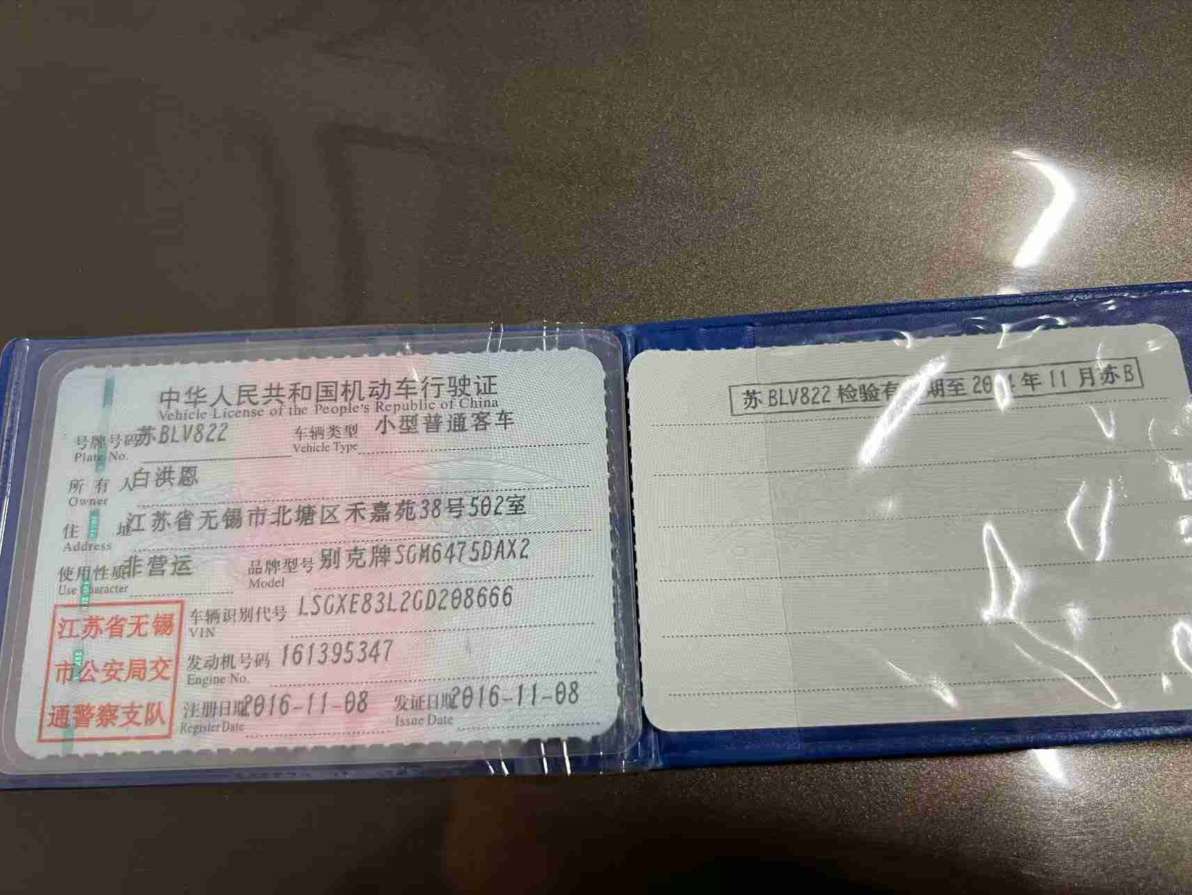 中华人民共和国机动车行驶证
Vehicle License of the People's Republic of China
号牌号码 苏BLV822 车辆类型 小型普通客车
Plate No. Vehicle Type
所有人 白洪恩
Owner
住址 江苏省无锡市北塘区禾嘉苑38号502室
Address
使用性质 非营运 品牌型号 别克牌SGM6475DAX2
Use Character Model
江苏省无锡
市公安局交
通警察支队
车辆识别代号 LSGXE83L2GD208666
VIN
发动机号码 161395347
Engine No.
注册日期 2016-11-08 发证日期 2016-11-08
Register Date Issue Date
苏BLV822 检验有 期至 年11月苏B